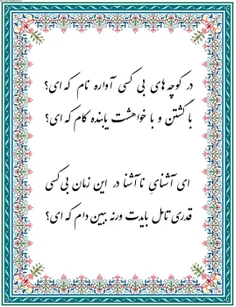 در کوچه های بی کسی آواره نام که ای؟
با گشتن و با خواهشت یابنده کام که ای؟
ای آشنای ناآشنا در این زمان بی کسی
قدری تامل بایدت ورنه ببین دام که ای؟